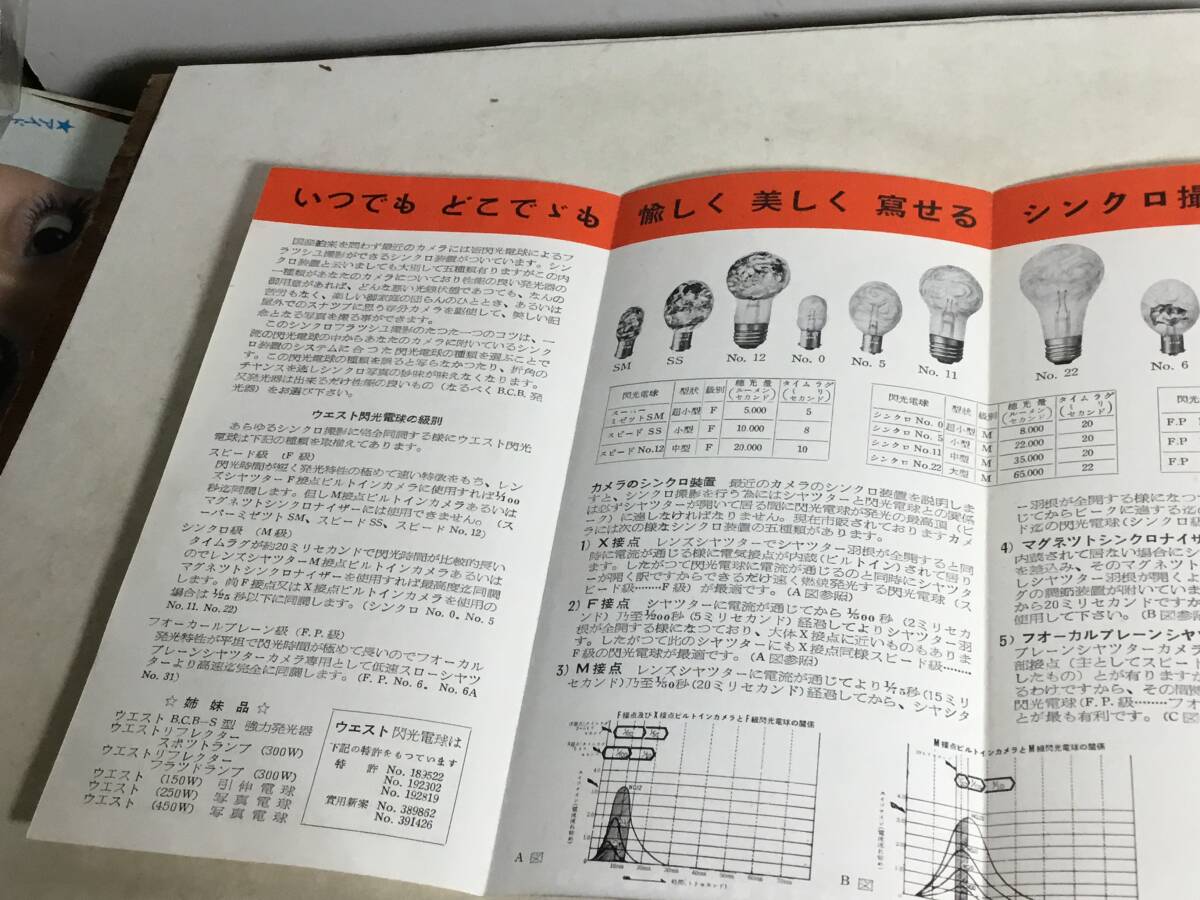 ★アイド
いつでも どこでゞも 愉しく 美しく 寫せる シンクロ撮
国産舶来を問わず最近のカメラには皆閃光電球によるフ
ラツシユ撮影ができるシンクロ装置がついています。シン
クロ装置と云いましても大別して五種類有りますがこの内
一種類があなたのカメラについており性能の良い発光器の
御用意があれば、どんな悪い光線状態であつても、なんの
苦労もなく、楽しい御家庭の団らんのひととき、あるいは
屋外でのスナツプに思う存分カメラを駆使して、美しい記
念となる写真を撮る事ができます。
このシンクロフラツシユ撮影のたつた一つのコツは、一
流の閃光電球の中からあなたのカメラに附いているシンク
ロ装置のシステムに合つた閃光電球の種類を選ぶことで
す。この閃光電球の種類を誤ると写らなかつたり、折角の
チャンスを逸しシンクロ写真の妙味が味えなくなります。
又発光器は出来るだけ性能の良いもの(なるべくB.C.B.発
光器)をお選び下さい。
ウエスト閃光電球の級別
あらゆるシンクロ撮影に完全同調する様にウエスト閃光
電球は下記の種類を取揃えてあります。
スピード級 (F 級)
閃光時間が短く発光特性の極めて速い特徴をもち、レン
ズシヤツターF接点ビルトインカメラに使用すれば1/100
秒迄同調します。但しM接点ビルトインカメラあるいは
マグネツトシンクロナイザーには使用できません。(ス
ーパーミゼツトSM、スピードSS、スピードNo.12)
シンクロ級 (M級)
タイムラグが約20ミリセカンドで閃光時間が比較的長い
のでレンズシヤツターM接点ビルトインカメラあるいは
マグネツトシンクロナイザーを使用すれば最高度迄同調
します。尚F接点又はX接点ビルトインカメラを使用の
場合は1/25秒以下に同調します。(シンクロ No.0、No.5
No.11. No.22)
フオーカルプレーン級 (F.P.級)
発光特性が平坦で閃光時間が極めて長いのでフオーカル
プレーンシヤツターカメラ専用として低速スローシヤツ
ターより高速迄完全に同調します。(F.P. No.6、No.6A
No.31)
☆ 姉 妹 品 ☆
ウエスト B.C.B−S型 強力発光器
ウエストリフレクター
スポツトランプ (300W)
ウエストリフレクター
フラツドランプ (300W)
ウエスト (150W) 引伸電球
ウエスト (250W) 写真電球
ウエスト (450W) 写真電球
ウエスト閃光電球は
下記の特許をもつています
特 許 No. 189522
No. 192302
No. 192819
實用新案 No. 389862
No. 391426
SM
SS
No. 12
No. 0
No. 5
No. 11
No. 22
No. 6
閃光電球 型狀 級別 總光量(ルーメンセカンド) タイムラグ(ミリセカンド)
スーパーミゼツトSM 超小型 F 5.000 5
スピード SS 小型 F 10.000 8
スピード No.12 中型 F 20.000 10
閃光電球 型狀 級別 總光量(ルーメンセカンド) タイムラグ(ミリセカンド)
シンクロ No. 0 超小型 M 8.000 20
シンクロ No. 5 小型 M 22.000 20
シンクロ No.11 中型 M 35.000 20
シンクロ No.22 大型 M 65.000 22
閃光
F.P
F.P
カメラのシンクロ装置 最近のカメラのシンクロ装置を説明しま
すと、シンクロ撮影を行う為にはシヤツターと閃光電球との関係
は必ずシヤツターが開いて居る間に閃光電球が発光の最高頂(ピ
ーク)に達しなければなりません。現在市販されておりますカメ
ラには次の様なシンクロ装置の五種類があります。
1) X接点 レンズシヤツターでシヤツター羽根が全開すると同
時に電流が通じる様に電気接点が内蔵(ビルトイン)されて居り
ます。したがつて閃光電球に電流が通じるのと同時にシヤツタ
ーが開く訳ですからできるだけ速く燃焼発光する閃光電球(ス
ピード級……F級)が最適です。(A図参照)
2) F接点 シヤツターに電流が通じてから1/500秒(2ミリセカ
ンド)乃至1/200秒(5ミリセカンド)経過してよりシヤツター羽
根が全開する様になつており、大体X接点に近いものもありま
す。したがつて此のシヤツターにもX接点同様スピード級……
F級の閃光電球が最適です。(A図参照)
3) M接点 レンズシヤツターに電流が通じてより1/75秒(15ミリ
セカンド)乃至1/50秒(20ミリセカンド)経過してから、シヤツタ
ー羽根が全開する様になつ
じてからピークに達する迄の
ド迄の閃光電球(シンクロ級
4) マグネツトシンクロナイザ
内蔵されて居ない場合にシ
を差込み、そのマグネツト
しシヤツター羽根が開くよ
グの調節装置が附いています
から20ミリセカンドですか
使用して下さい。(B図参照)
5) フオーカルプレーンシヤ
プレーンシヤツターカメラ
部接点(主としてスピード
したもの)とが有りますが
るわけですから、その間
閃光電球(F.P.級……フオ
とが最も有利です。(C図
F接点及びX接点ビルトインカメラとF級閃光電球の関係
A図
M接点ビルトインカメラとM級閃光電球の関係
B図